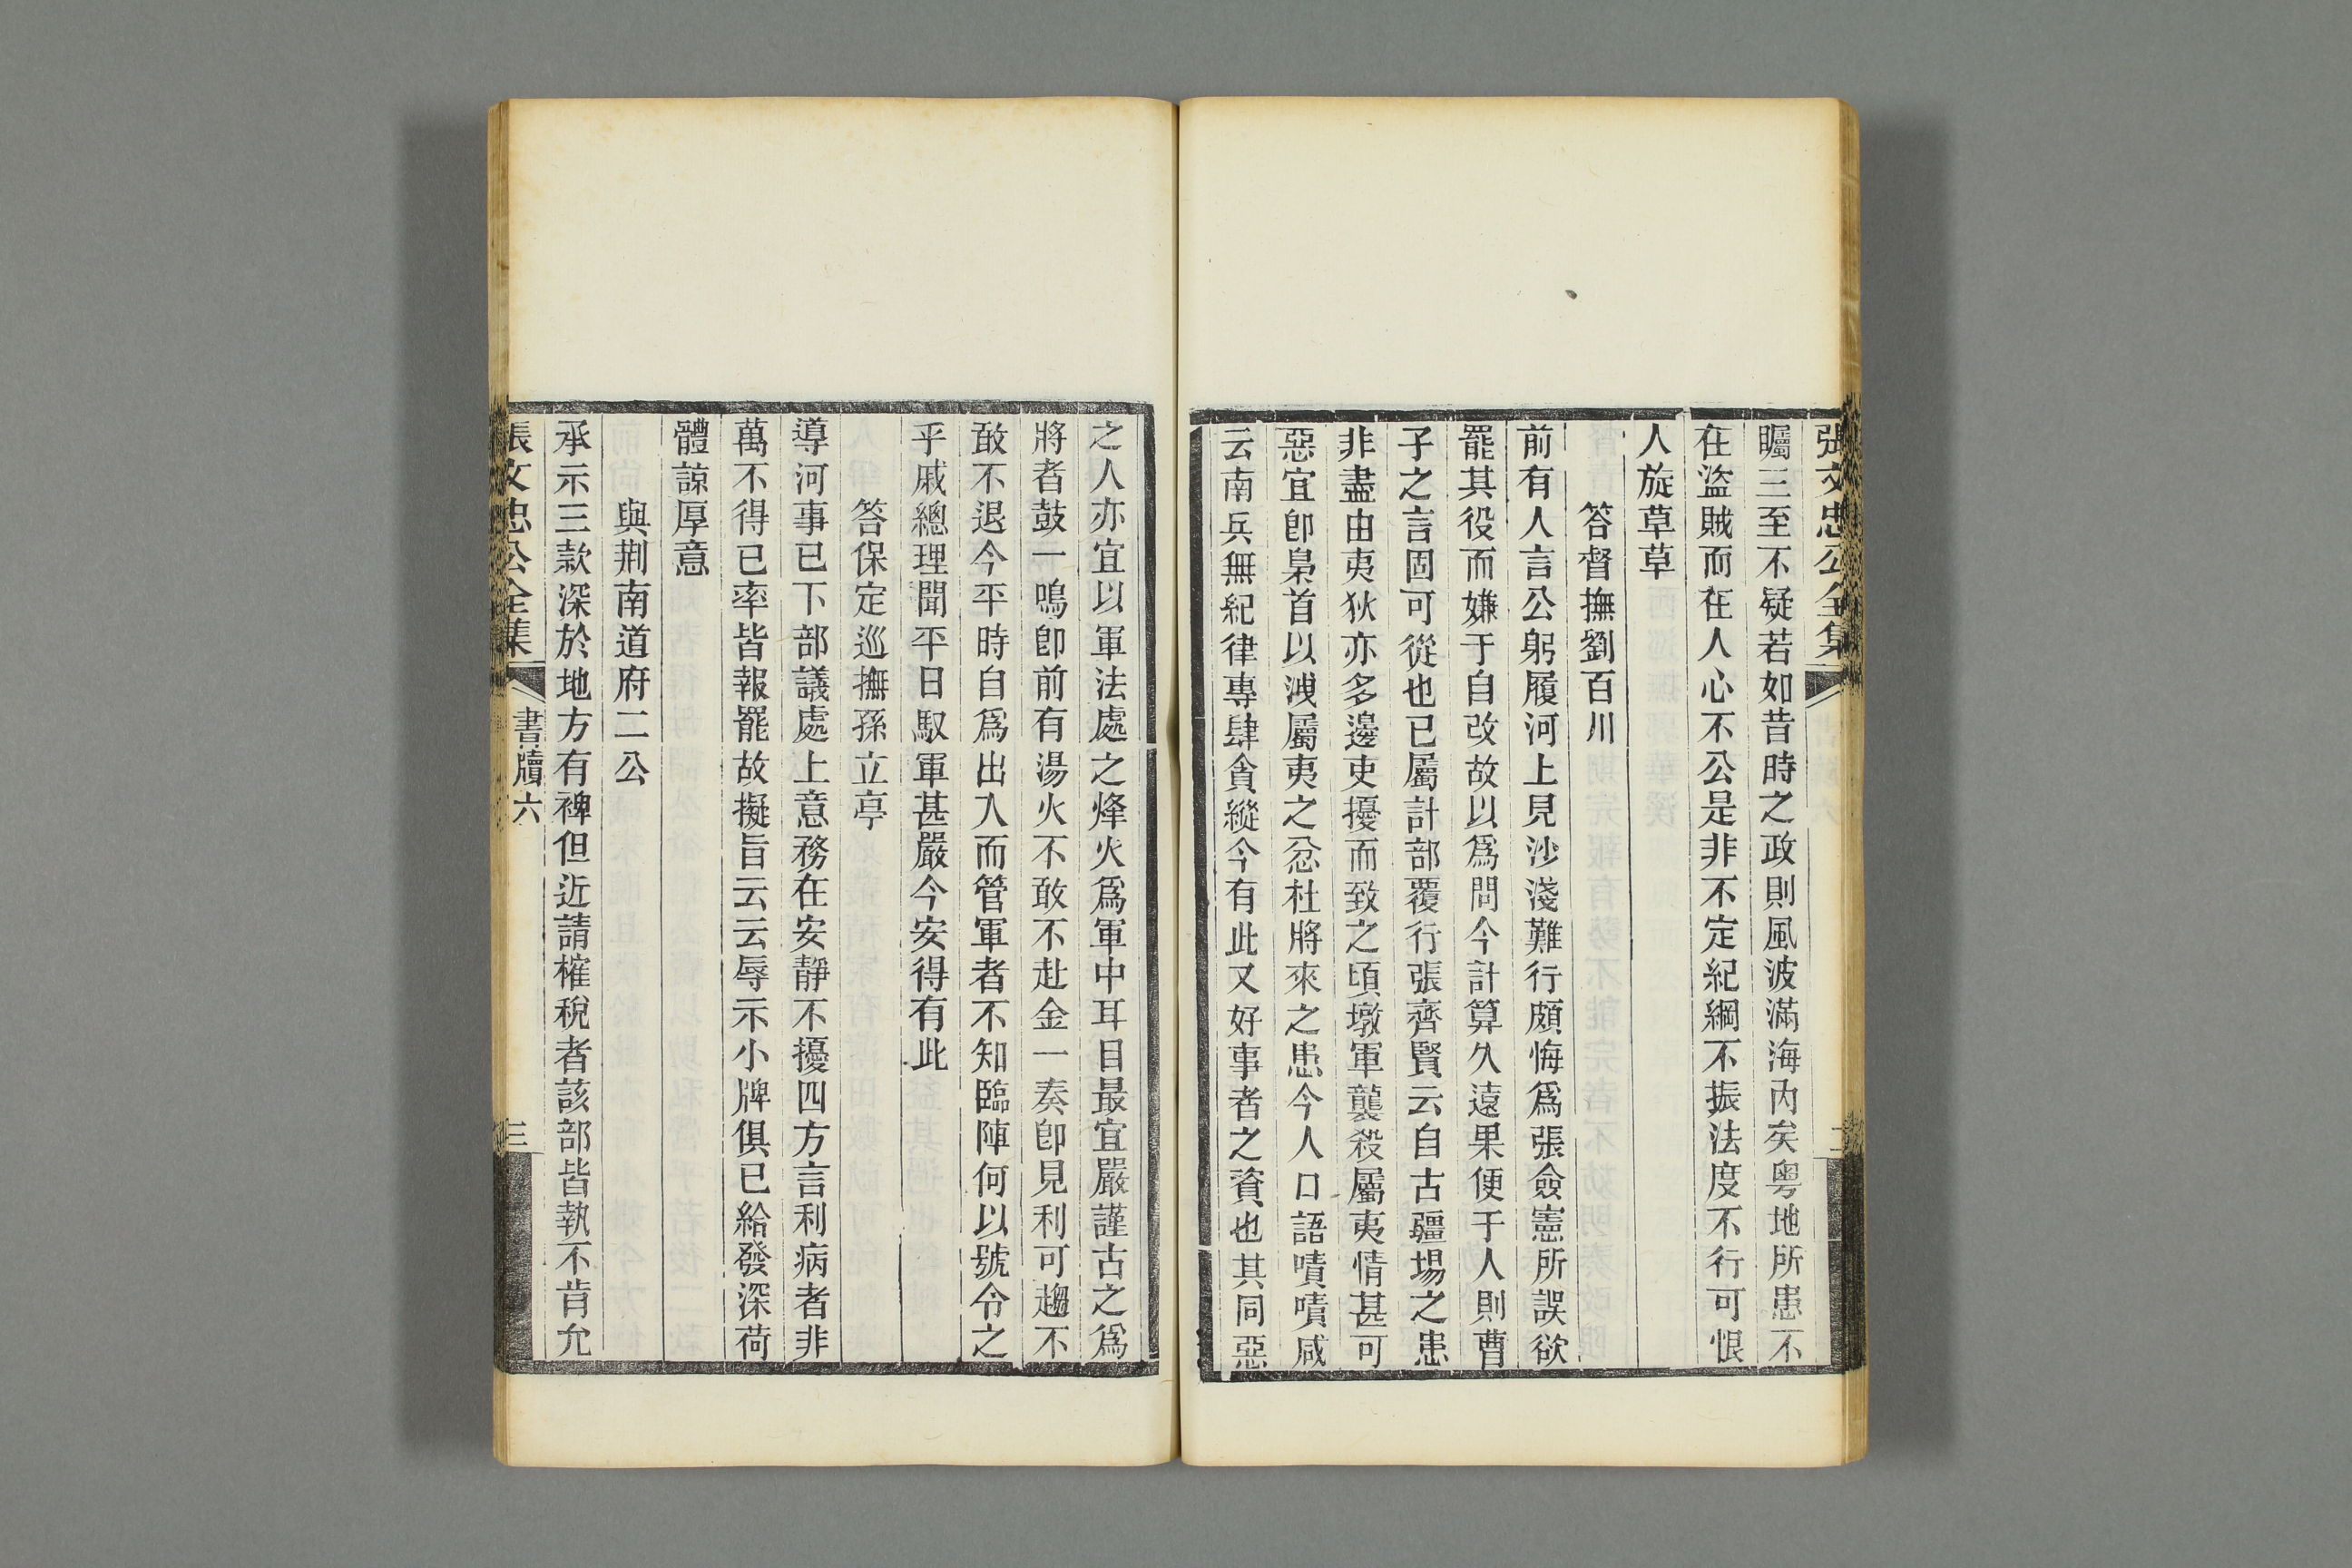 張文忠公全集
二
矚三至不疑若如昔時之政則風波滿海內矣粤地所患不
在盜賊而在人心不公是非不定紀綱不振法度不行可恨
人旋草草
答督撫劉百川
前有人言公躬履河上見沙淺難行頗悔爲張僉憲所誤欲
罷其役而嫌于自改故以爲問今計算久遠果便于人則曹
子之言固可從也已屬計部覆行張齊賢云自古疆場之患
非盡由夷狄亦多邊吏擾而致之頃墩軍襲殺屬夷情甚可
惡宜卽梟首以洩屬夷之忿杜將來之患今人口語嘖嘖咸
云南兵無紀律專肆貪縱今有此又好事者之資也其同惡
之人亦宜以軍法處之烽火爲軍中耳目最宜嚴謹古之爲
將者鼓一鳴卽前有湯火不敢不赴金一奏卽見利可趨不
敢不退今平時自爲出入而管軍者不知臨陣何以號令之
乎戚總理聞平日馭軍甚嚴今安得有此
答保定巡撫孫立亭
導河事已下部議處上意務在安靜不擾四方言利病者非
萬不得已率皆報罷故擬旨云云辱示小牌俱已給發深荷
體諒厚意
與荆南道府二公
承示三款深於地方有裨但近請榷稅者該部皆執不肯允
張文忠公全集
書牘六
三